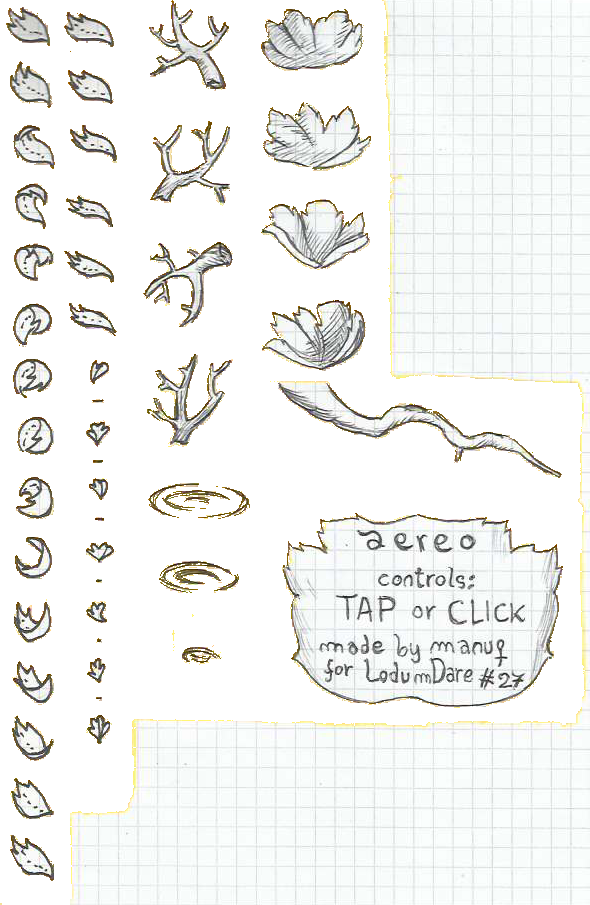 aereo
controls:
TAP or CLICK
made by manuq
for LudumDare #27